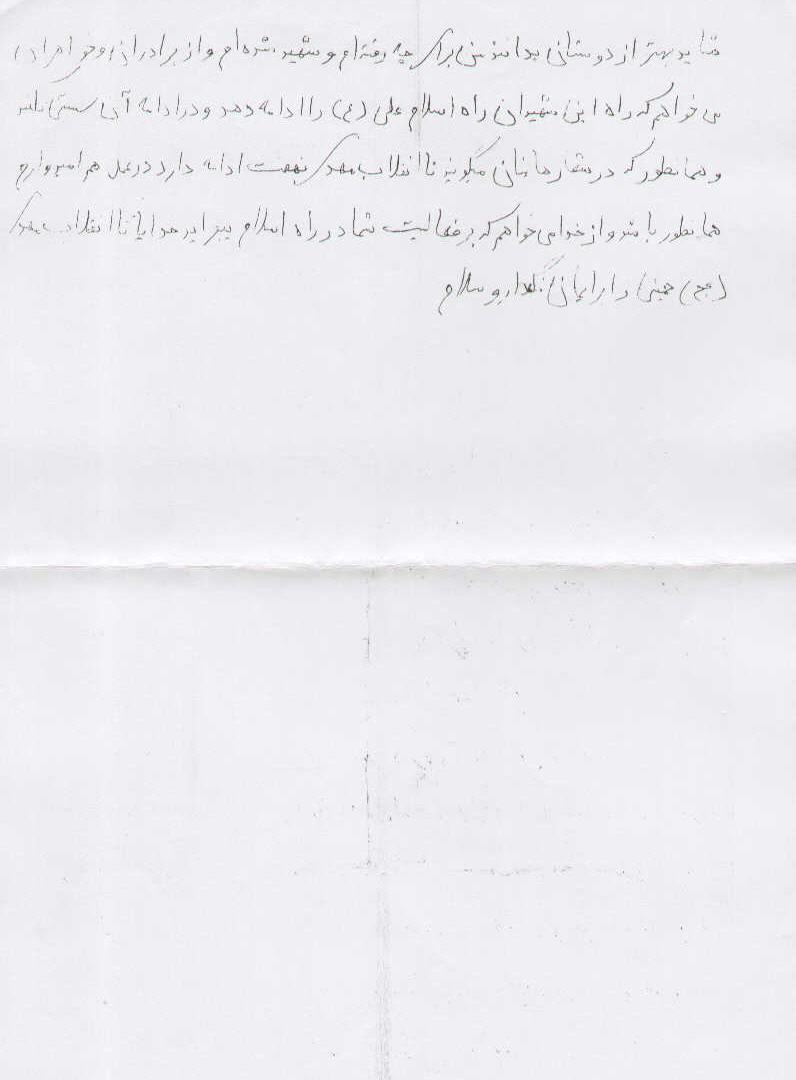 شاید بهتر از دوستانی بدانند من برای چه رفته‌ام و شهید شده‌ام و از برادران
می خواهم که راه این شهیدان راه اسلام علی (ع) را ادامه دهد و در ادامه آن سستی نکند
و همانطور که در شعارهاشان میگویند تا انقلاب مهدی نهضت ادامه دارد در عمل هم امیدوارم
همانطور باشد و از خدا می خواهم که بر فعالیت شما در راه اسلام بیفزاید خدایا تا انقلاب مهدی
(عج) خمینی را برایمان نگهدار و سلام